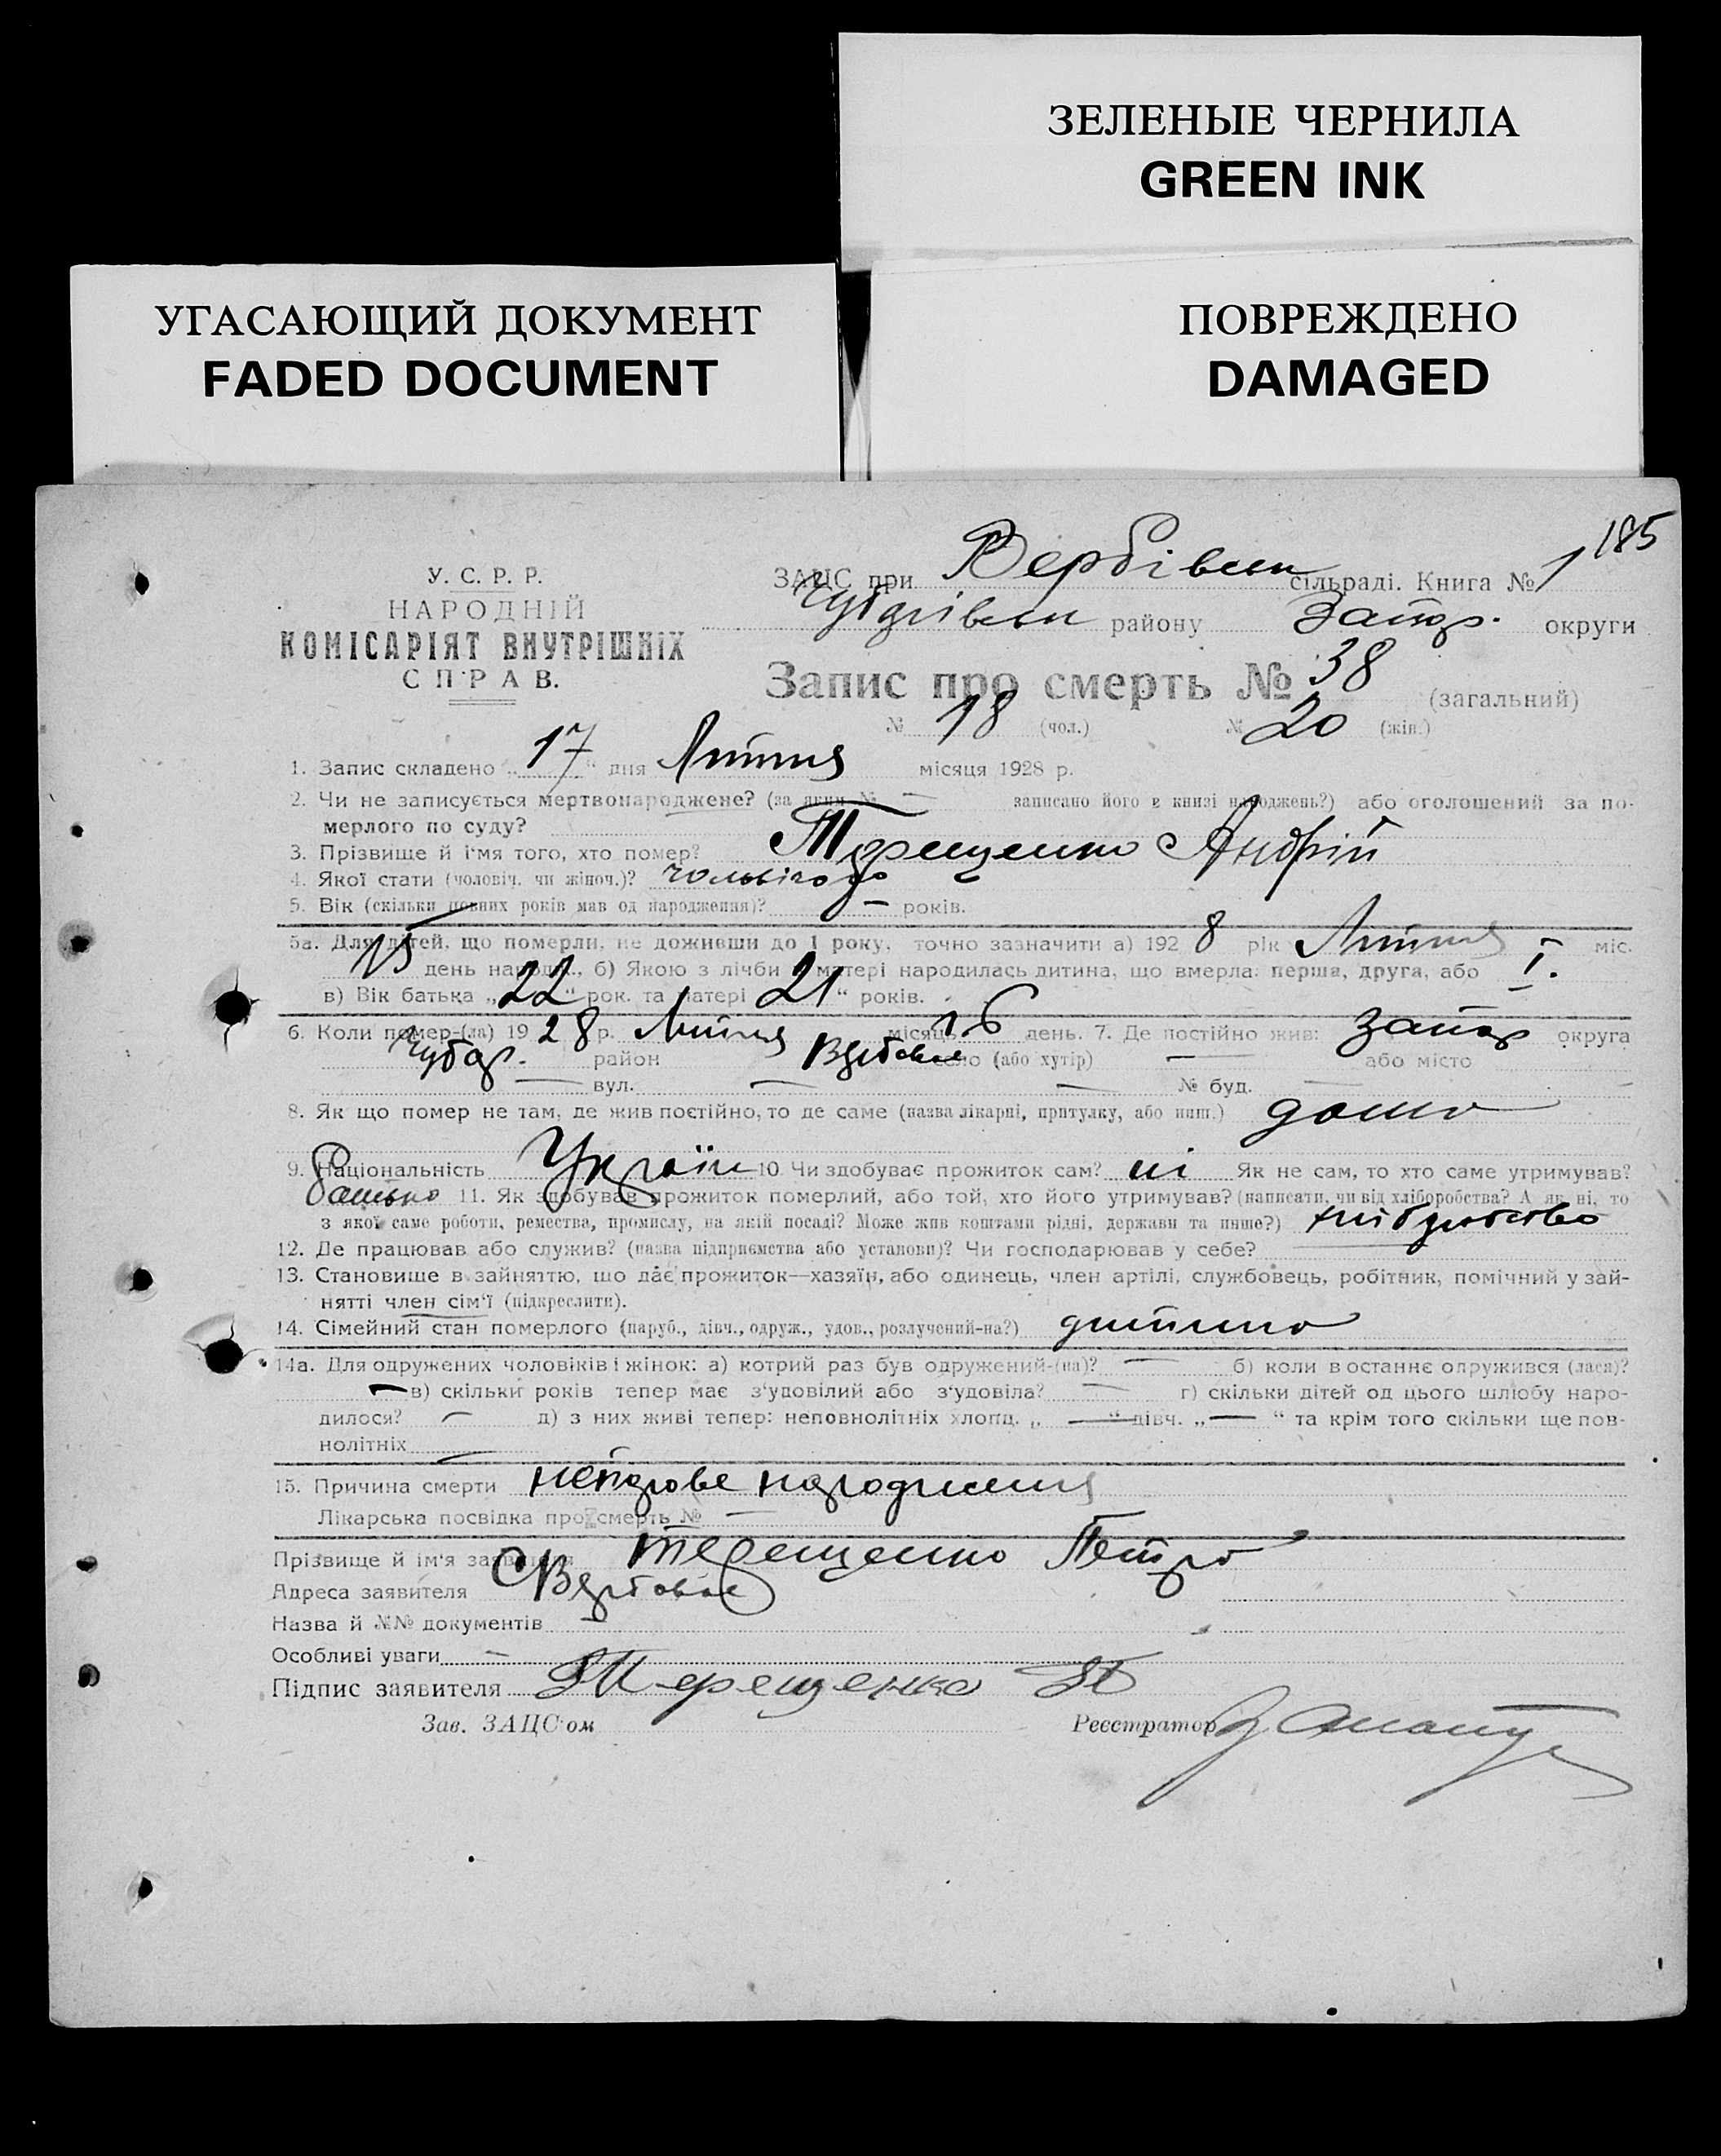 ЗЕЛЕНЫЕ ЧЕРНИЛА
GREEN INK
УГАСАЮЩИЙ ДОКУМЕНТ
FADED DOCUMENT
ПОВРЕЖДЕНО
DAMAGED
185
У. С. Р. Р.
НАРОДНІЙ
КОМІСАРІЯТ ВНУТРІШНІХ
СПРАВ.
ЗАЦС при Вербівськ сільраді. Книга № 1
району Запор. округи
Запис про смерть № 38 (загальний)
№ 18 (чол.) № 20 (жін.)
1. Запис складено „17“ дня Липня місяця 1928 р.
2. Чи не записується мертвонароджене? (за яким № — записано його в книзі народжень?) або оголошений за по-
мерлого по суду?
3. Прізвище й ім'я того, хто помер? Терещенко Андрій
4. Якої стати (чоловіч. чи жіноч.)?
5. Вік (скільки повних років мав од народження)? — років.
5а. Для дітей, що померли, не доживши до 1 року, точно зазначити а) 192 8 рік Липня міс.
15 день народж., б) Якою з лічби у матері народилась дитина, що вмерла: перша, друга, або I.
в) Вік батька „22“ рок. та матері „21“ років.
6. Коли помер-(ла) 19 28 р. Липня місяць 16 день. 7. Де постійно жив: Запор округа
Чубар. район Вербове село (або хутір) — або місто
— вул. — — № буд. —
8. Як що помер не там, де жив постійно, то де саме (назва лікарні, притулку, або инш.) дома
9. Національність Україн 10. Чи здобуває прожиток сам? ні Як не сам, то хто саме утримував?
батько 11. Як здобував прожиток померлий, або той, хто його утримував? (написати, чи від хліборобства? А як ні, то
з якої саме роботи, ремества, промислу, на якій посаді? Може жив коштами рідні, держави та инше?) хліборобство
12. Де працював або служив? (назва підприємства або установи)? Чи господарював у себе?
13. Становище в зайняттю, що дає прожиток—хазяїн, або одинець, член артілі, службовець, робітник, помічний у зай-
нятті член сім'ї (підкреслити).
14. Сімейний стан померлого (паруб., дівч., одруж., удов., розлучений-на?) дитина
14а. Для одружених чоловіків і жінок: а) котрий раз був одружений-(на)? — б) коли в останнє одружився (лася)?
— в) скільки років тепер має з'удовілий або з'удовіла? — г) скільки дітей од цього шлюбу наро-
дилося? — д) з них живі тепер: неповнолітніх хлопц. „ — “ дівч. „ — “ та крім того скільки ще пов-
нолітніх —
15. Причина смерти народження
Лікарська посвідка про смерть № —
Прізвище й ім'я заявителя Терещенко Петро
Адреса заявителя С Вербове
Назва й №№ документів
Особливі уваги —
Підпис заявителя Терещенко П
Зав. ЗАЦС'ом Реєстратор